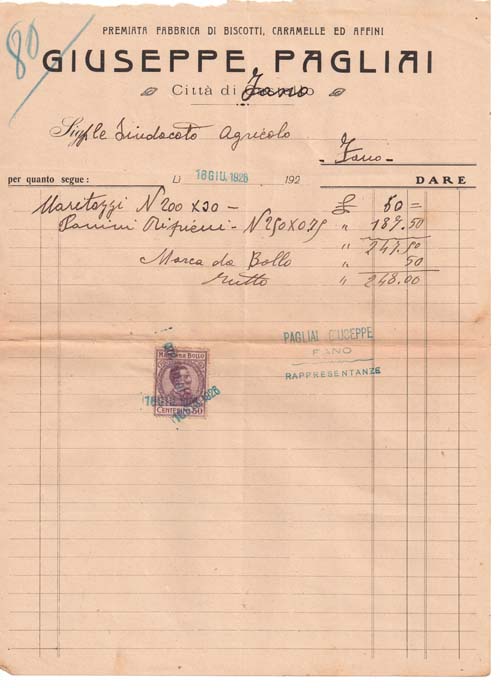 80
PREMIATA FABBRICA DI BISCOTTI, CARAMELLE ED AFFINI
GIUSEPPE PAGLIAI
Città di Fano
Sindacato Agricolo
- Fano -
per quanto segue: Lì 16 GIU. 1926 192 DARE
Maritozzi N 200 x 30 - £ 50 =
Panini Ripieni - N 250 x 0.75 " 187.50
247.50
Marca da Bollo " 50
Netto " 248.00
PAGLIAI GIUSEPPE
FANO
RAPPRESENTANZE
MARCA DA BOLLO
16 GIU. 1926
CENTESIMI 50